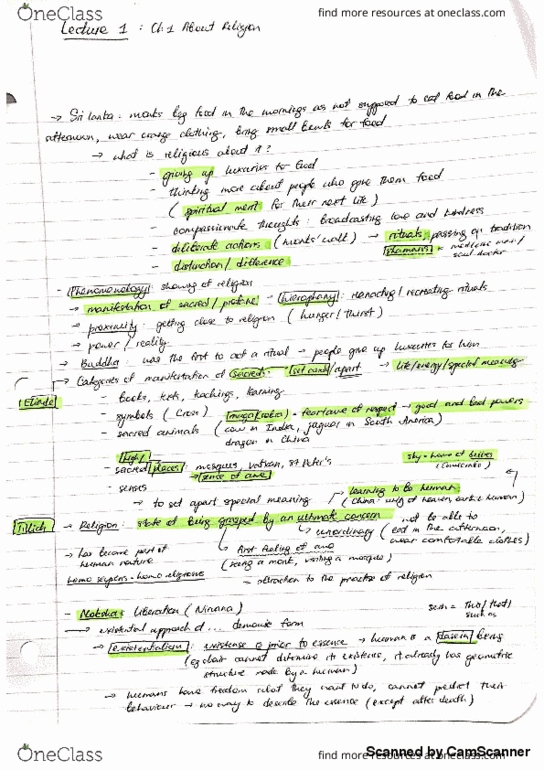 OneClass
find more resources at oneclass.com
Lecture 1 : Ch.1 About Religion
→ Sri lanka : monks beg food in the mornings as not supposed to eat food in the
afternoon, wear orange clothing, bring small bowls for food
→ what is religious about it?
- giving up luxuries to God
- thinking more about people who give them food
( spiritual merit for their next life )
- compassionate thoughts : broadcasting love and kindness
- deliberate actions ( monks' walk ) → rituals, passing on tradition
- distinction / difference
shamans = medicine men / soul doctor
- Phenomenology : showing of religion
→ manifestation of sacred / profane - hierophany : reenacting / recreating rituals
→ proximity : getting close to religion ( hunger / thirst )
→ power / reality
→ Buddha : was the first to act a ritual → people give up luxuries for him
→ Categories of manifestation of sacred - set aside / apart → life / energy / special meaning
Eliade
- books, texts, teachings, learning
- symbols ( cross ) - fear / awe of respect → good and bad powers
- sacred animals ( cow in India, jaguar in South America )
dragon in China
high
- sacred places : mosques, Vatican, St Peter's
→ sense of awe
sky = home of deities
- senses
→ to set apart special meaning
learning to be human
( China : way of heaven, earth & human )
Tillich
- Religion : state of being grasped by an ultimate concern
not be able to
unordinary ( eat in the afternoon,
wear comfortable clothes )
→ has become part of
human nature
first feeling of awe
( being a monk, visiting a mosque )
homo sapiens = homo religiosus
- attraction to the practice of religion
- Moksha : Liberation ( Nirvana )
→ existential approach of ... demonic form
→ existentialism : existence is prior to essence → human is a dasein being
( eg chair cannot determine its existence, it already has geometric
structure made by a human )
→ humans have freedom what they want to do, cannot predict their
behaviour → no way to describe the essence ( except after death )
Scanned by CamScanner
OneClass
find more resources at oneclass.com